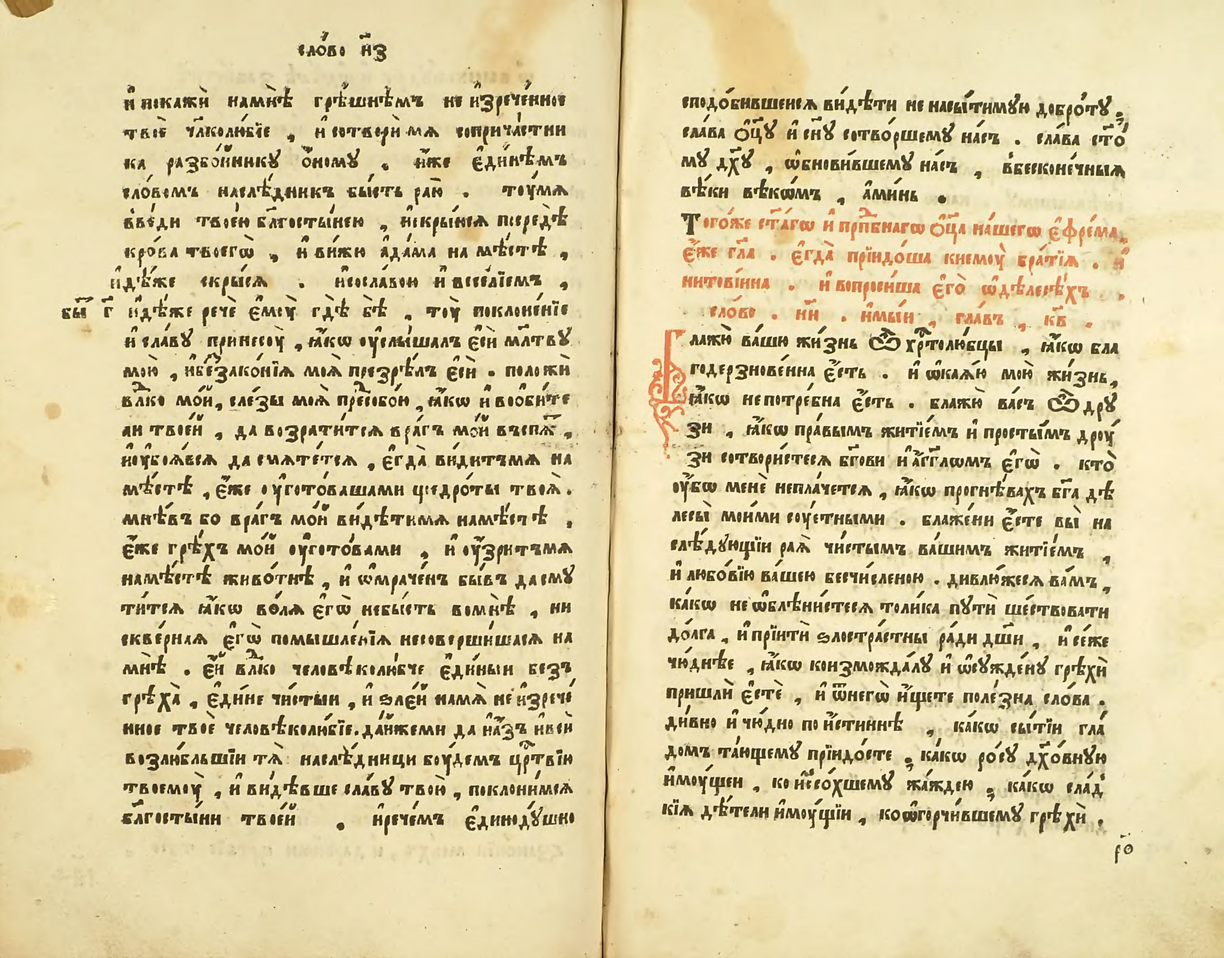 сло́во н҃з
и҆ покажѝ намнѣ̀ грѣ́шнѣмъ неи҆зрече́нное
твоѐ чл҃колю́бїе , и҆ сотвори́ мѧ соприча́стни
ка разбо́йнику о҆́ному . и҆́же є҆ди́нѣмъ
сло́вомъ наслѣ́дникъ бы́сть раю̀ . тоу́мѧ
вве́ди твое́ю бл҃госты́нею , и҆скры́исѧ посредѣ̀
кро́ва твоегѡ̀ , и҆ ви́жи а҆да́ма на мѣ́стѣ ,
и҆дѣ́же скры́сѧ . и҆сосла́вою и҆ весе́лїемъ ,
бы́т҇ г҃ и҆дѣ́же речѐ є҆моу̀ гдѣ̀ бѣ̀ , тоу̀ поклоне́нїе
и҆ сла́ву принесоу̀ , ꙗ҆́кѡ оу҆слы́шалъ є҆сѝ мл҃тву
мою̀ , и҆беззако́нїѧ моѧ̀ презрѣ́лъ є҆сѝ . положѝ
влⷣко мо́й , сле́зы моѧ̀ пресобо́ю , ꙗ҆́кѡ и҆ во ѻ҆бѣ́те
ли твое́й , да возрати́тсѧ вра́гъ мо́й въспѧ́т҇ ,
и҆оубоѧ́всѧ да смѧте́тсѧ , є҆гда̀ ви́дитъмѧ на
мѣ́стѣ , є҆́же оу҆гото́вашами щедро́ты твоѧ̀ .
мнѣ́въ бо вра́гъ мо́й ви́дѣтимѧ намѣ́стѣ ,
є҆́же грѣ́хъ мо́й оу҆гото́вами , и҆ оу҆́зритъмѧ
намѣ́стѣ живо́тнѣ , и҆ ѡ҆мраче́нъ бы́въ даему
ти́тсѧ ꙗ҆́кѡ во́лѧ є҆гѡ̀ небы́сть вомнѣ̀ , ни
скве́рнаѧ є҆гѡ̀ помышле́нїѧ несоверши́шасѧ на
мнѣ̀ . є҆́й влⷣко человѣколю́бче є҆ди́ныи безъ
грѣха̀ , є҆ди́не чи́стыи , и҆ ѕле́й намѧ̀ неи҆зрече́
нное твоѐ человѣколю́бїе . да́йжеми да и҆а҆́зъ и҆всѝ
возлю́бльшїи тѧ̀ наслѣ́дници бо́удемъ црⷭ҇твїю
твоемоу̀ , и҆ ви́дѣвше сла́ву твою̀ , поклони́мсѧ
бл҃госты́ни твое́й . и҆рече́мъ є҆диноду́шно
сподо́бившемсѧ ви́дѣти ненасы́тимую добро́ту .
сла́ва ѻ҆ц҃ꙋ̀ и҆ сн҃ꙋ сотво́ршемꙋ на́съ . сла́ва ст҃о́
мꙋ дх҃ꙋ , ѡ҆бнови́вшемꙋ на́съ , вбесконе́чныѧ
вѣ́ки вѣко́мъ , а҆ми́нь .
Того́же ст҃а́гѡ и҆ прпⷣбнагѡ ѻ҆ц҃а̀ на́шегѡ є҆фре́ма ,
є҆́же гл҃а . є҆гда̀ прїидо́ша кнемоу̀ бра́тїѧ . и҆
нитови́нна . и҆ вопроси́ша є҆го̀ ѡ҆дѣ́лесѣхъ .
сло́во . н҃и . и҆мы́и , гла́въ , к҃в .
Блажꙋ̀ ва́шꙋ жи́знь ѽ хрⷭ҇толю́бцы , ꙗ҆́кѡ бла
годерзнове́нна є҆́сть . и҆ ѡ҆каѧ́ю мою̀ жи́знь ,
ꙗ҆́кѡ непотре́бна є҆́сть . блажꙋ̀ ва́съ ѽ дрꙋ́
зи , ꙗ҆́кѡ пра́вымъ житїе́мъ и҆ просты́мъ дроу́
зи сотвори́стесѧ бг҃ови и҆ а҆́гг҃ломъ є҆гѡ̀ . кто̀
оу҆́бѡ менѐ непла́четсѧ , ꙗ҆́кѡ прогнѣ́вахъ бг҃а дѣ
лесы̀ мои́ми соу́етными . блаже́ни є҆стѐ вы̀ на
слѣ́дующїи ра́ѧ чи́стымъ ва́шимъ житїе́мъ ,
и҆ любо́вїю ва́шею бесчи́сленою . дивлю́жесѧ ва́мъ ,
ка́кѡ неѡ҆блѣни́стесѧ толи́ка пꙋтѝ ше́ствовати
до́лга , и҆ прїи́ти ѕлостра́стны ра́ди дш҃и , и҆ се́же
чю́днѣе , ꙗ҆́кѡ коизможда́лꙋ и҆ ѡ҆сꙋжде́нꙋ грѣхѝ
пришлѝ є҆стѐ , и҆ ѿнегѡ̀ и҆́щете поле́зна сло́ва .
ди́вно и҆ чю́дно по и҆́стиннѣ , ка́кѡ сы́тїи гла́
домъ та́ющемꙋ прїидо́сте , ка́кѡ ро́сꙋ дх҃о́вную
и҆мо́ущеи , ко и҆со́хшемꙋ жа́ждею , ка́кѡ сла́д
кїѧ дѣ́тели и҆мо́ущїи , коѡ҆горчи́вшемꙋ грѣхѝ .
р҃ѳ